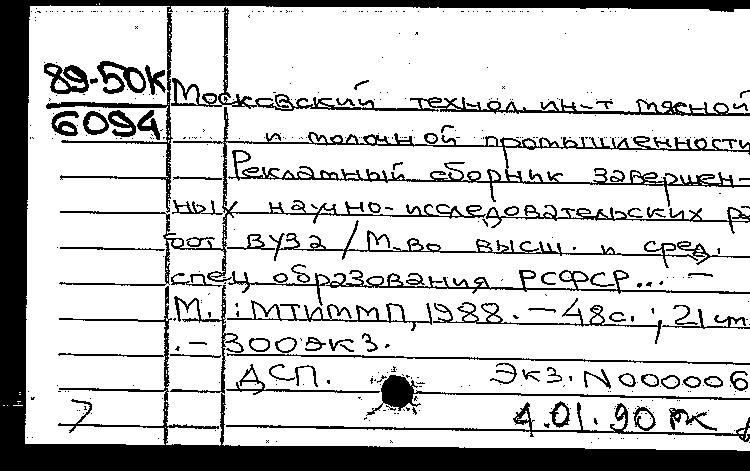 89-50К
6094
Московский технол. ин-т мясной
и молочной промышленности
Рекламный сборник завершен-
ных научно-исследовательских ра
бот вуза / М-во высш. и сред.
спец. образования РСФСР... –
М. : МТИММП, 1988. – 48с. ; 21 см
. – 300 экз.
ДСП. Экз. N000006
4.01.90